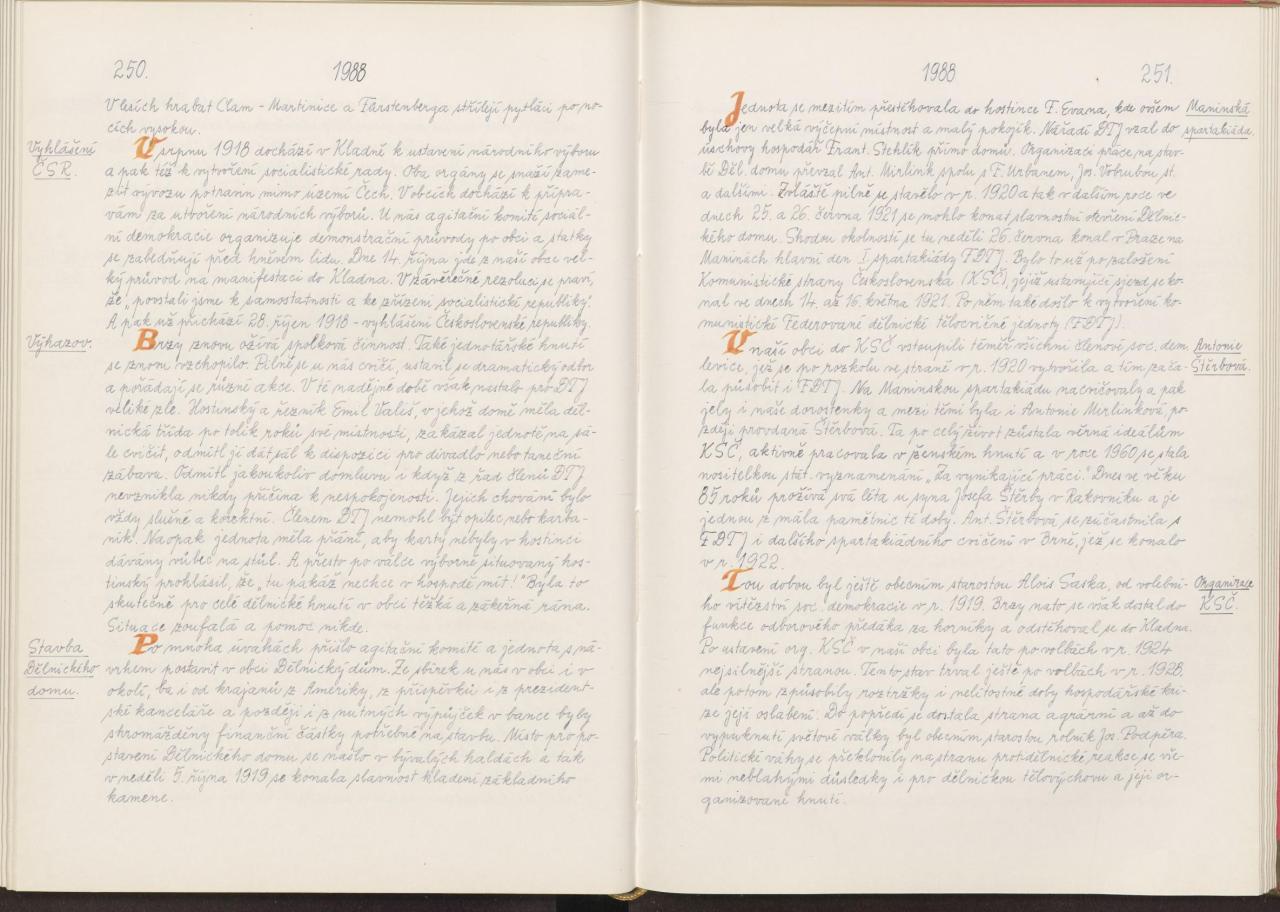 250.
1988
V lesích hrabat Clam-Martinice a Fürstenberga střílejí pytláci po no-
cích vysokou.
Vyhlášení
ČSR.
V srpnu 1918 dochází v Kladně k ustavení národního výboru
a pak též k vytvoření socialistické rady. Oba orgány se snaží zame-
zit vývozu potravin mimo území Čech. V obcích dochází k přípra-
vám za utvoření národních výborů. U nás agitační komité sociál-
ní demokracie organizuje demonstrační průvody po obci a statky
se zabedňují před hněvem lidu. Dne 14. října jde z naší obce vel-
ký průvod na manifestaci do Kladna. V závěrečné rezoluci se praví,
že "povstali jsme k samostatnosti a ke zřízení socialistické republiky".
A pak už přichází 28. říjen 1918 - vyhlášení Československé republiky.
Výhazov.
Brzy znovu ožívá spolková činnost. Také jednotářské hnutí
se znovu vzchopilo. Pilně se u nás cvičí, ustavil se dramatický odbor
a pořádají se různé akce. V té nadějné době však nastalo pro DTJ
veliké zle. Hostinský a řezník Emil Valeš, v jehož domě měla děl-
nická třída po tolik roků své místnosti, zakázal jednotě na sá-
le cvičit, odmítl jí dát sál k dispozici pro divadlo nebo taneční
zábavu. Odmítl jakoukoliv domluvu i když z řad členů DTJ
nevznikla nikdy příčina k nespokojenosti. Jejich chování bylo
vždy slušné a korektní. Členem DTJ nemohl být opilec nebo karba-
ník. Naopak jednota měla přání, aby karty nebyly v hostinci
dávány vůbec na stůl. A přesto po válce výborně situovaný hos-
tinský prohlásil, že "tu pakáž nechce v hospodě mít!" Byla to
skutečně pro celé dělnické hnutí v obci těžká a zákeřná rána.
Situace zoufalá a pomoc nikde.
Stavba
Dělnického
domu.
Po mnoha úvahách přišlo agitační komité a jednota s ná-
vrhem postavit v obci Dělnický dům. Ze sbírek u nás v obci i v
okolí, ba i od krajanů z Ameriky, z příspěvků i z prezident-
ské kanceláře a později i z nutných výpůjček v bance byly
shromážděny finanční částky potřebné na stavbu. Místo pro po-
stavení Dělnického domu se našlo v bývalých haldách a tak
v neděli 5. října 1919 se konala slavnost kladení základního
kamene.
1988
251.
Jednota se mezitím přestěhovala do hostince F. Evana, kde ovšem
byla jen velká výčepní místnost a malý pokojík. Nářadí DTJ vzal do
úschovy hospodář Frant. Stehlík přímo domů. Organizaci práce na stav-
bě Děl. domu převzal Ant. Mirlink spolu s F. Urbanem, Jos. Vobrubou st.
a dalšími. Zvláště pilně se stavělo v r. 1920 a tak v dalším roce ve
dnech 25. a 26. června 1921 se mohlo konat slavnostní otevření Dělnic-
kého domu. Shodou okolností se tu neděli 26. června konal v Praze na
Maninách hlavní den I. spartakiády FDTJ. Bylo to už po založení
Komunistické strany Československa (KSČ), jejíž ustavující sjezd se ko-
nal ve dnech 14. až 16. května 1921. Po něm také došlo k vytvoření ko-
munistické Federované dělnické tělocvičné jednoty (FDTJ).
Maninská
spartakiáda.
V naší obci do KSČ vstoupili téměř všichni členové soc. dem.
levice, jež se po rozkolu ve straně v r. 1920 vytvořila a tím zača-
la působit i FDTJ. Na Maninskou spartakiádu nacvičovaly a pak
jely i naše dorostenky a mezi těmi byla i Antonie Merlínková, po-
zději provdaná Štěrbová. Ta po celý život zůstala věrná ideálům
KSČ, aktivně pracovala v ženském hnutí a v roce 1960 se stala
nositelkou stát. vyznamenání "Za vynikající práci". Dnes ve věku
85 roků prožívá svá léta u syna Josefa Štěrby v Rakovníku a je
jednou z mála pamětnic té doby. Ant. Štěrbová se zúčastnila s
FDTJ i dalšího spartakiádního cvičení v Brně, jež se konalo
v r. 1922.
Antonie
Štěrbová.
Tou dobou byl ještě obecním starostou Alois Saska, od volební-
ho vítězství soc. demokracie v r. 1919. Brzy nato se však dostal do
funkce odborového předáka za horníky a odstěhoval se do Kladna.
Po ustavení org. KSČ v naší obci byla tato po volbách v r. 1924
nejsilnější stranou. Tento stav trval ještě po volbách v r. 1928,
ale potom způsobily roztržky i nelítostné doby hospodářské kri-
ze její oslabení. Do popředí se dostala strana agrární a až do
vypuknutí světové války byl obecním starostou rolník Jos. Podpěra.
Politické váhy se překlonily na stranu protidělnické reakce se vše-
mi neblahými důsledky i pro dělnickou tělovýchovu a její or-
ganizované hnutí.
Organizace
KSČ.